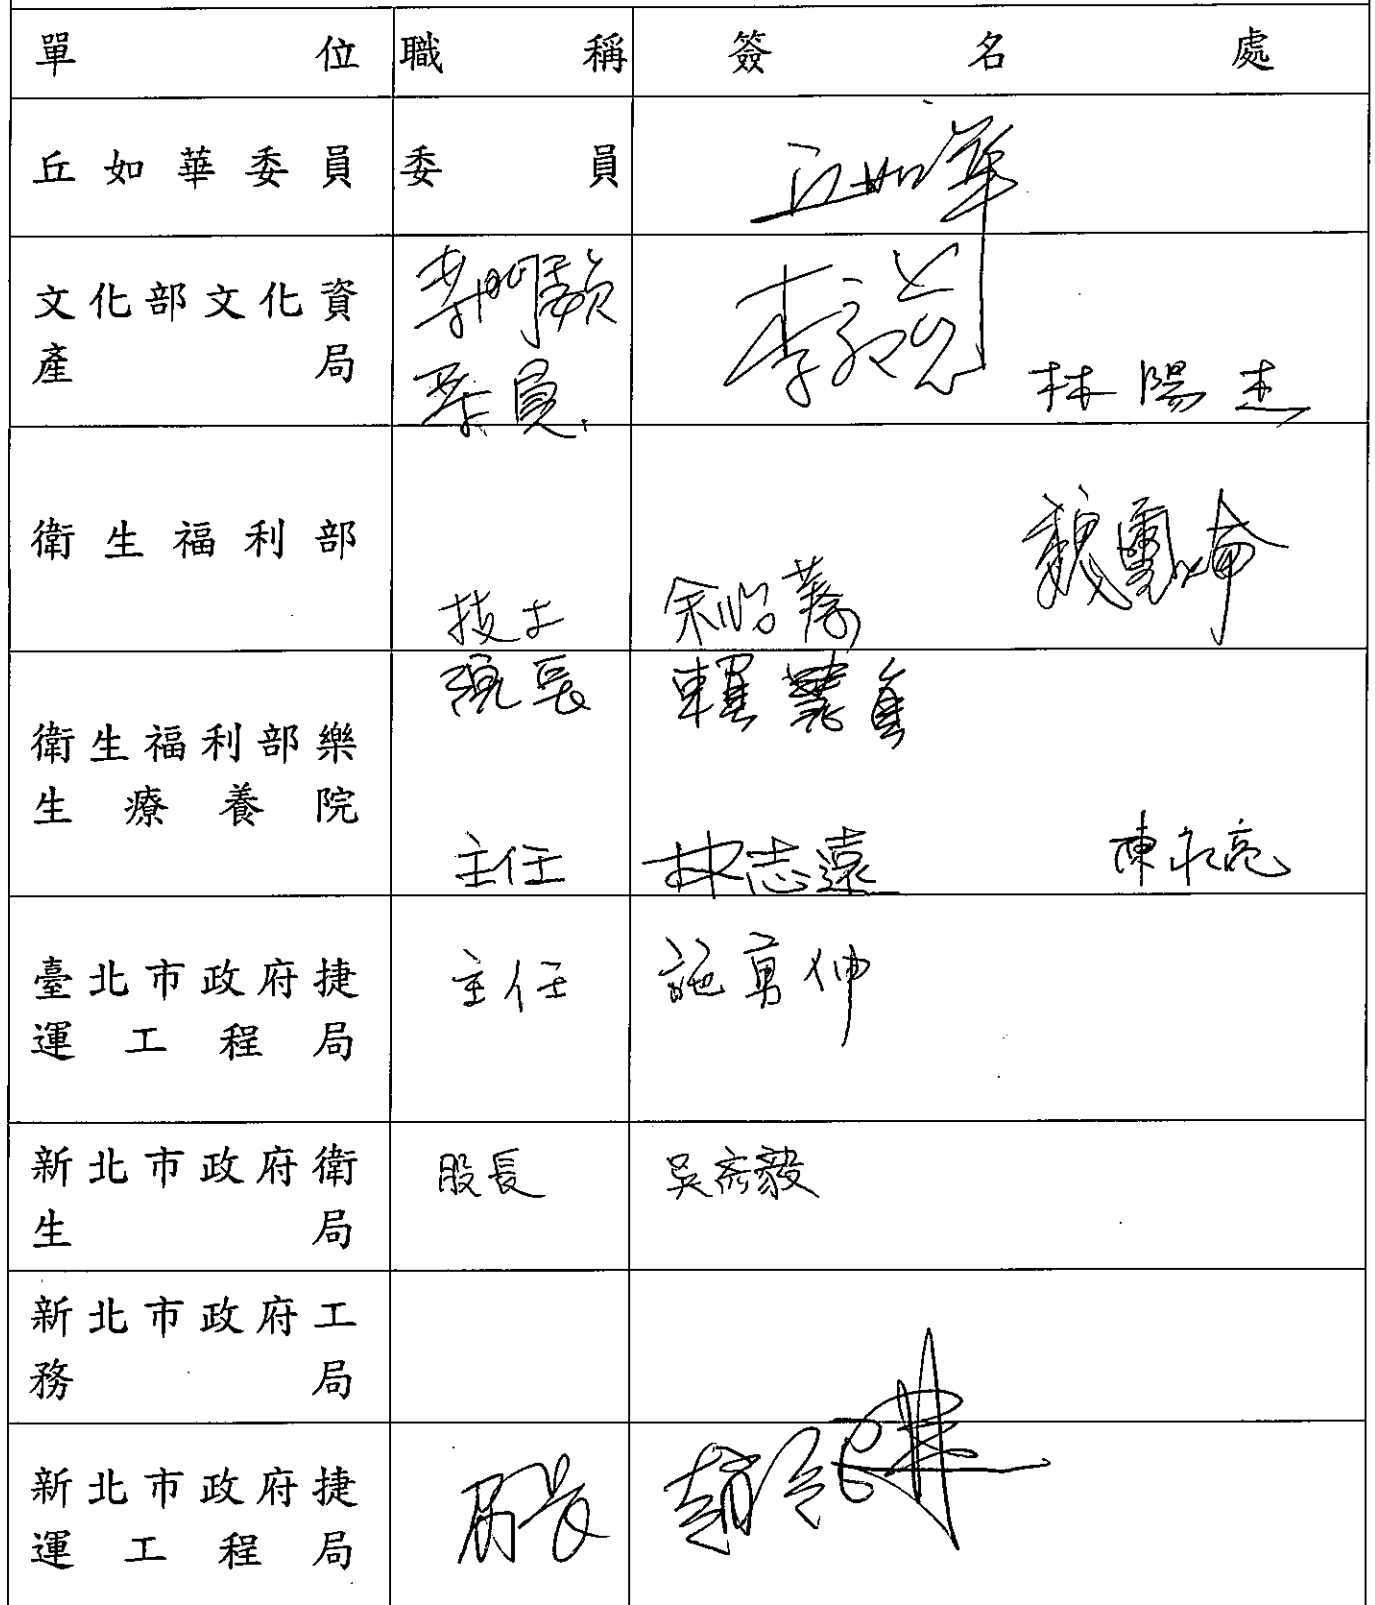 單位 職稱 簽名處
丘如華委員 委員 丘如華
文化部文化資
產局
專門委員 李
林陽杰
衛生福利部
技士 余 魏
衛生福利部樂
生療養院
院長
主任 林志遠 陳永亮
臺北市政府捷
運工程局
主任 施勇伸
新北市政府衛
生局
股長 吳彥毅
新北市政府工
務局
新北市政府捷
運工程局
局長 趙